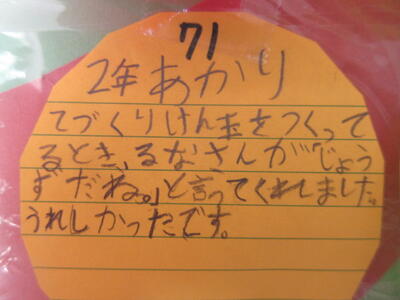 71
2年あかり
てづくりけん玉をつくって
るとき、るなさんが「じょう
ずだね。」と言ってくれました。
うれしかったです。